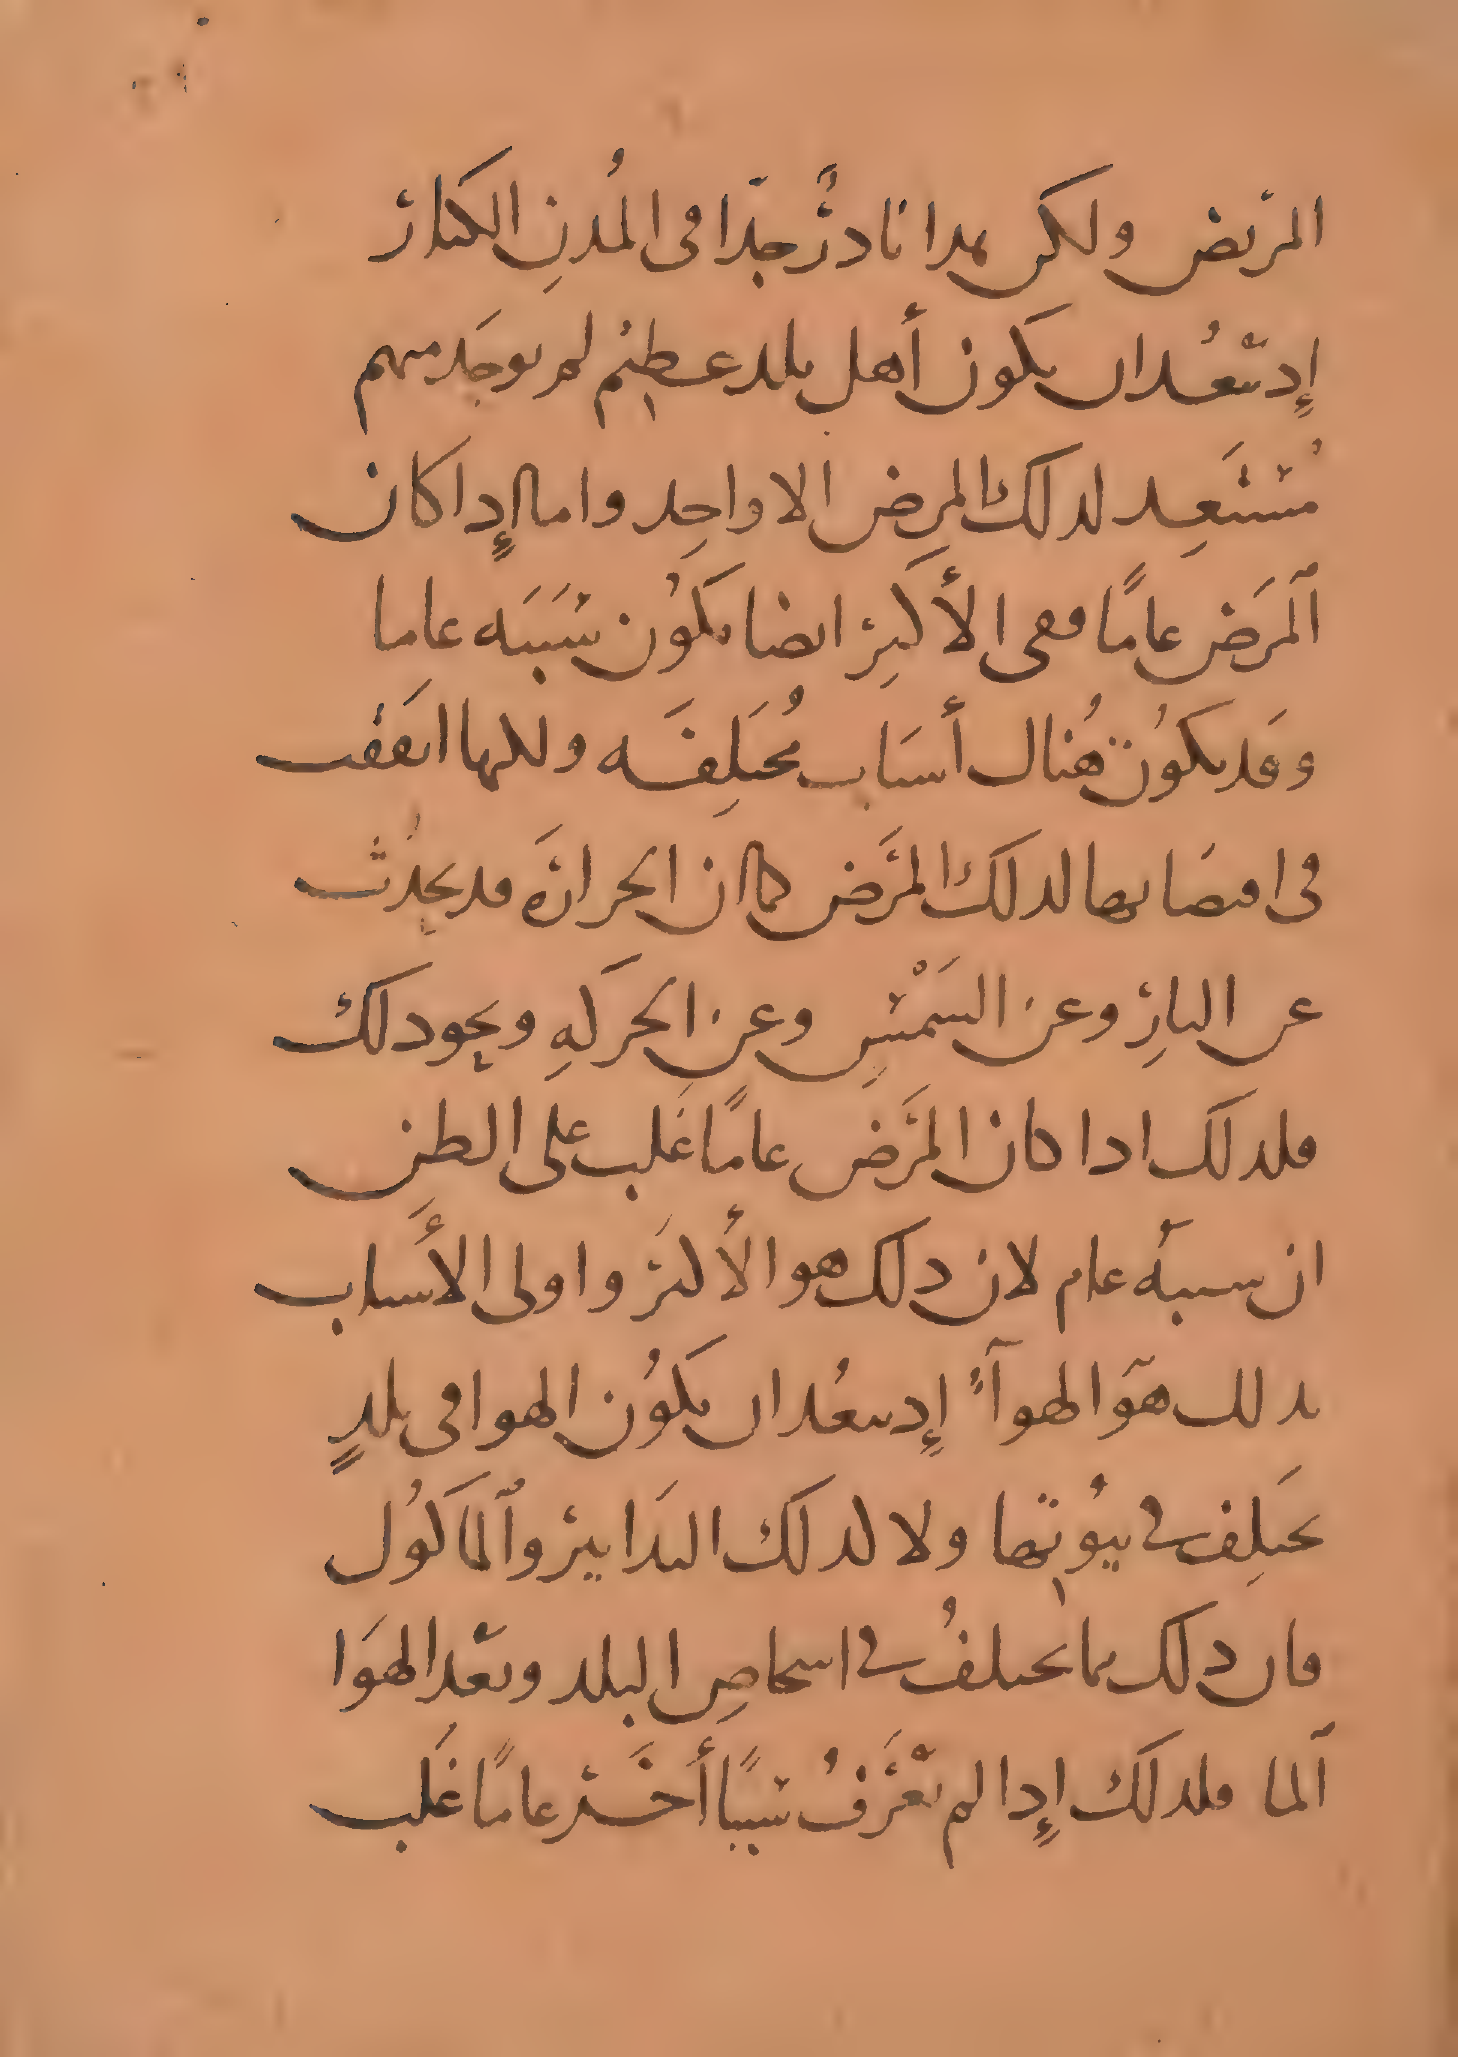 المريض ولكن هذا نادرٌ جدّا فى المُدنِ الكبار
إِذ يبعُد ان يكون أهل بلد عظيم لم يوجَد منهم
مُستَعِد لذلك المرض الا واحِد واما إِذا كان
ٱلمرَض عامًا ففى الأكثِر ايضا يكوُن سَبَبَه عاما
وقد يكوُن هُناك أسبَاب مُختَلِفَه ولكنها اتفقت
فى اقتضائها لذلك المرَض كما ان الحرارَه قد يحدُث
عن النارِ وعن الشَمْسِ وعن الحركَهِ ونحو ذلك
فلذلك اذا كان المرَض عامًا غَلب على الظن
ان سببَه عام لان ذلك هو الأكثرَ واولى الأَسباب
بذلك هوَ الهوآءُ إِذ يبعُد ان يكوُن الهوا فى بلدٍ
يختَلِف فى بيُوتها ولا كذلك التدَابير وٱلماكوُل
فان ذلك مما يختلفُ فى اشخاصِ البلد وبعّد الهوَا
ٱلما فلذلك إِذا لم نعرَفُ سببًا أخَر عامًا غَلب